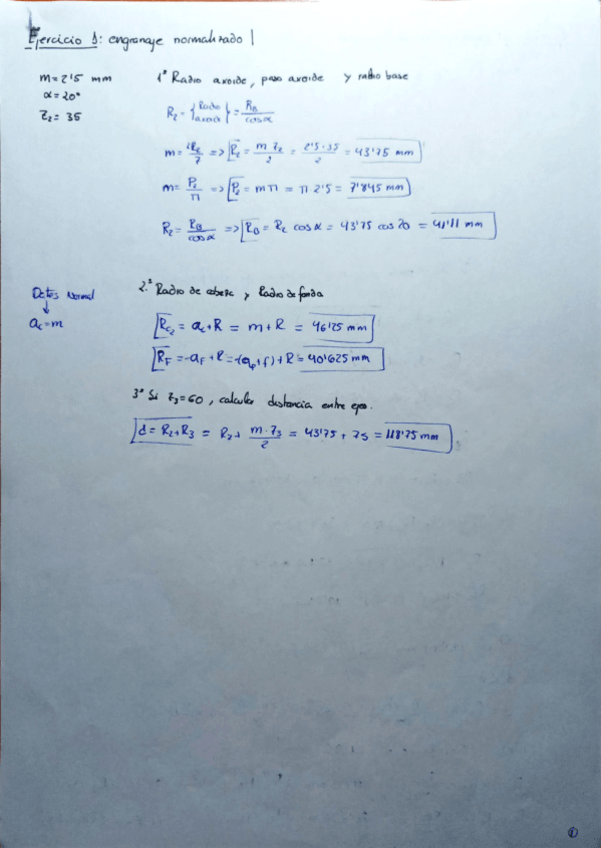 Ejercicio 1: engranaje normalizado 1
m=2'5 mm
α=20°
Z₂=35
1º Radio axoide, paso axoide y radio base
R₂={Radio axoide}=R_B/cosα
m=2R₂/Z => R₂=m Z₂/2=2'5·35/2=43'75 mm
m=P₂/π => P₂=mπ=π 2'5=7'845 mm
R₂=R_B/cosα => R_B=R₂ cosα=43'75 cos20=41'11 mm
Datos Normal
↓
a_c=m
2º Radio de cabeza y Radio de fondo
R_c₂=a_c+R=m+R=46'25 mm
R_F=-a_F+R=-(a_c+f)+R=40'625 mm
3º Si Z₃=60, calcular distancia entre ejes.
d=R₂+R₃=R₂+m·Z₃/2=43'75+75=118'75 mm
1